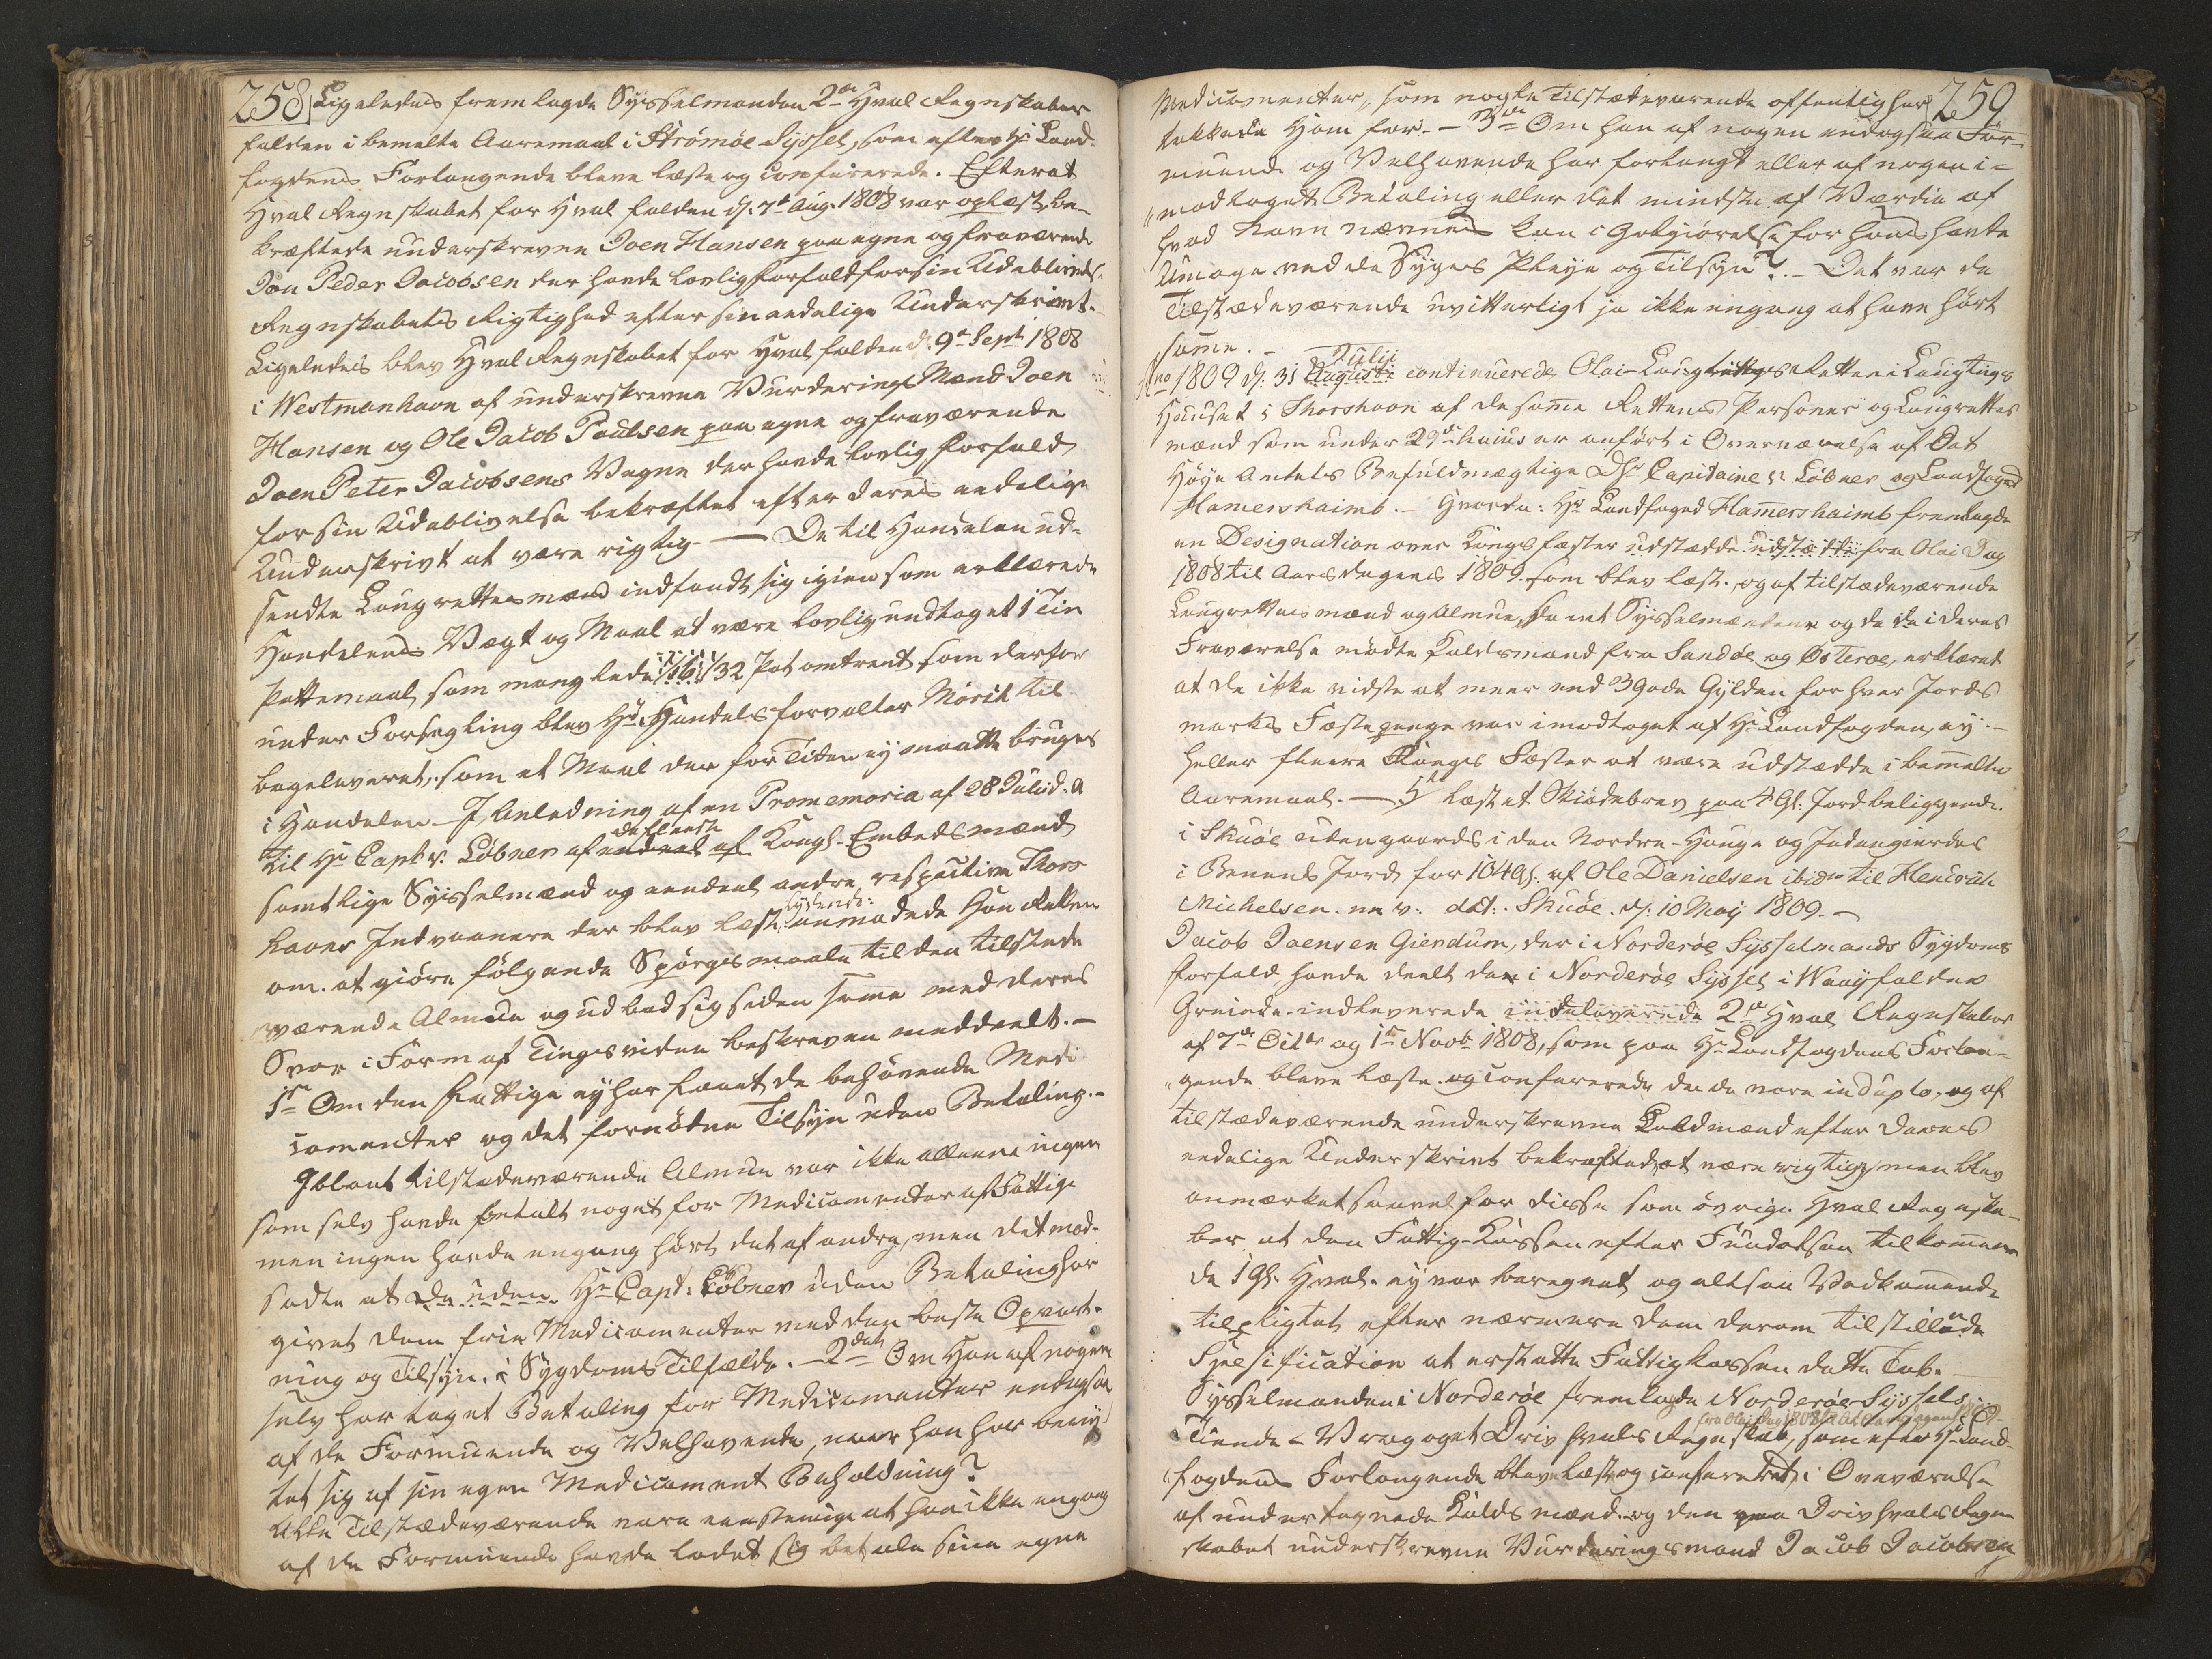 258
Ligeledes fremlagde Sysselmanden 2de Hval Regnskaber
falden i bemelte Aaremaal i Strømøe Syssel, som efter Hr Land-
fogdens Forlangende bleve læste og confererede. Efterat
Hval Regnskabet for Hval falden d: 7de Aug. 1808 var oplæst, be-
kræftede underskrevne Joen Hansen paa egne og fraværende
Joen Peder Jacobsen der havde lovlig Forfald for sin Udeblivelse
Regnskabets Rigtighed efter sin aedelige Underskrivt.
Ligeledes blev Hval Regnskabet for Hval falden d: 9de Sept 1808
i Westmanhavn af underskrevne Vurderings Mænd Joen
Hansen og Ole Jacob Poulsen paa egne og fraværende
Joen Peter Jacobsens Vegne der havde lovlig Forfald
for sin Udeblivelse bekræftet efter deres aedelige
Underskrivt at være rigtig. — De til Handelen ud-
sendte Laugrettesmænd indfandt sig igien som erklærede
Handelens Vægt og Maal at være lovlig undtaget 1 Tin
Pottemaal, som manglede 1/16 1/32 Pot omtrent som derfor
under Forsegling blev Hr Handelsforvalter Mörch til-
bageleveret, som et Maal der for Tiden ey maatte bruges
i Handelen. — I Anledning af en Promemoria af 28 Julii d. A
til Hr Capt v. Løbner af endeel af Kongl. Embedsmænd
de fleeste
samtlige Sysselmænd og eendeel andre respective Thors
havns Indvaanere der blev læst, anmodede Han Retten
lydende:
om at giøre følgende Spørgsmaale til den tilstede
værende Almue og udbad sig siden samme med deres
Svar i Form af Tingsvidne beskreven meddeelt. —
1te Om den Fattige ey har faaet de behøvende Medi
camenter og det fornødne Tilsyn uden Betaling. —
Iblant tilstædeværende Almue var ikke alleene ingen
som selv havde betalt noget for Medicamenter af Fattige
men ingen havde engang hørt det af andre, men det mod-
sadte at De uden Hr Capt: Løbner uden Betaling har
givet dem frie Medicamenter med den beste Opvart-
ning og Tilsyn i Sygdoms Tilfælde. — 2det Om Han af nogen
selv har taget Betaling for Medicamenter endogsaa
af de Formuende og Velhavende, naar han har beny
tet sig af sin egen Medicament Beholdning?
Alle Tilstædeværende vare eenstemmige at han ikke engang
af de Formuende havde ladet sig betale sine egne
259
Medicamenter, som nogle Tilstædeværende offentlig her
takkede Ham for. — 3die Om han af nogen endogsaa For-
muende og Velhavende har forlangt eller af nogen i-
modtaget Betaling eller det mindste af Værdie af
hvad Navn nævnes kan i Godtgiørelse for hans havte
Umage ved de Syges Pleye og Tilsyn? — Det var de
Tilstædeværende uvitterligt ja ikke engang at have hørt
samme. —
Julii
Ano 1809 d: 31 Augusti continuerede Olai-Laugtings Retten i Laugtings
Huuset i Thorshavn af de samme Rettens Personer og Laugrettes
mænd som under 29de hujus er anført i Overværelse af Det
Høye Amtets Befuldmægtige Dhr Capitaine v: Løbner og Landfoged
Hamershaimb. — Hvorda: Hr Landfoged Hamershaimb fremlagde
en Designation over Kongs fæster udstædde udstædte fra Olai Dag
1808 til Aarsdagens 1809. som blev læst, og af tilstædeværende
Laugrettes mænd og Almue, samt Sysselmændene og de i deres
Fraværelse mødte Kaldsmænd fra Sandøe og Østerøe, erklæret
at de ikke vidste at meer end 3 gode Gylden for hver Jords
marks Fæstepenge var imodtaget af Hr Landfogden, ey
heller fleere Konges Fæster at være udstædde i bemelte
Aaremaal. — læst et Skiødebrev paa 4 Gl: Jord beliggende
i Skuøe udengaards i den Nordre-Hauge og Indengierdes
i Bønens Jord for 104 Gl: af Ole Danielsen ibidem til Henrich
Michelsen m. v: dat: Skuøe d: 10 May 1809. —
Jacob Joensen Giendum, der i Norderøe Sysselmands Sygdoms
Forfald havde deelt den i Norderøe Syssel i Waay falden
Greinde indleverede indeleverede 2de Hval Regnskaber
af 7de Octbr og 1ste Novbr 1808, som paa Hr Landfogdens Forlan-
gende bleve læste og confererede da de vare in duplo, og af
tilstædeværende underskrevne Kaldmænd efter deres
aedelige Underskrivt bekræftedes at være rigtig, men blev
anmærket saavel for disse som øvrige Hval Regnska-
ber at den Fattig-Kassen efter Fundatsen tilkommen
de 1 Gl. Hval. ey var beregnet og altsaa Vedkommende
tilpligtet efter nærmere dem derom tilstillende
Specification at erstatte Fattigkassen dette Tab.
Sysselmanden i Norderøe fremlagde Norderøe Syssels
fra Olai Dag 1808 til Aarsdagen 1809
Tiende- Vrag og et Driv hvals Regnskab, som efter Hr Land-
fogdens Forlangende blev læst og confereret i Overværelse
af undertegnede Kaldsmænd og den paa Drivhvals Regn
skabet underskrevne Vurderingsmand Jacob Jacobsen